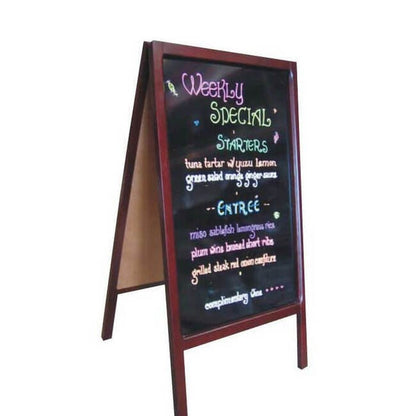 Weekly
Special
Starters
tuna tartar w/ yuzu lemon
green salad orange ginger sauce
-- Entreé --
miso sablefish lemongrass rice
plum wine braised short ribs
grilled steak red onion confiture
complimentary wine